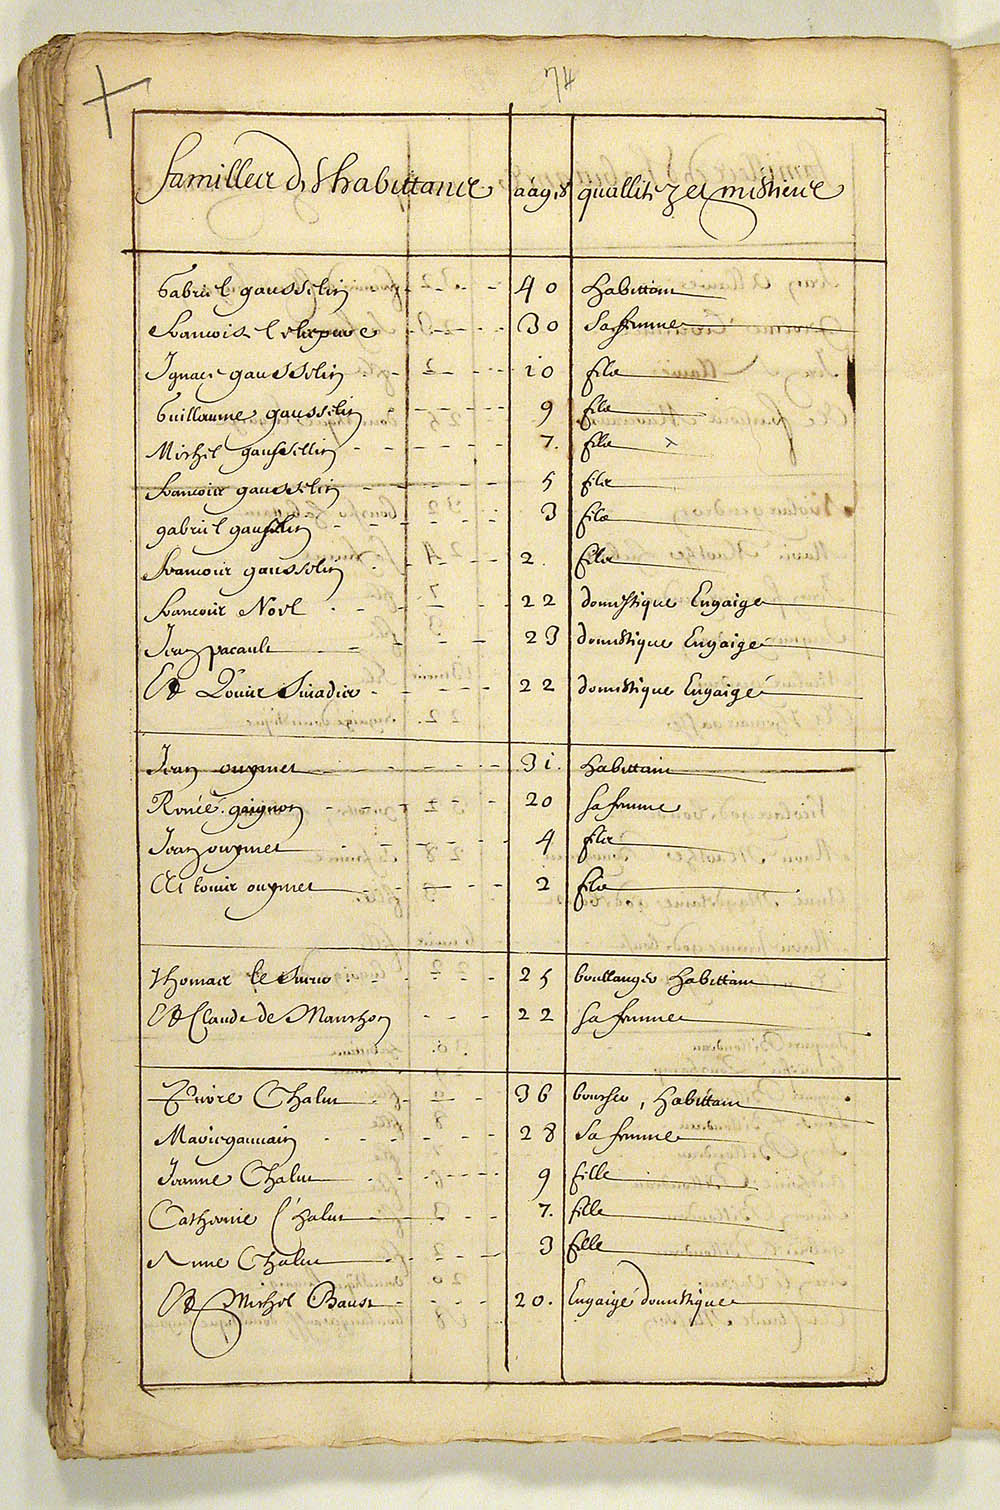 74
familles d'habittans aages quallitez et mestiers
Gabriel gausselin 40 habittant
francoise leliepvre 30 Sa femme
Ignace gausselin 10 filz
Guillaume gausselin 9 filz
Michel gausselin 7. filz
francois gausselin 5 filz
gabriel gausselin 3 filz
francois gausselin 2. filz
francois Noel 22 domestique Engaigé
Jean pacault 23 domestique Engaigé
Et Louis 22 domestique Engaigé
Jean ouymet 31. habittant
Renée gaignon 20 Sa femme
Jean ouymet 4 filz
Et louis ouymet 2 filz
Thomas le Sueur 25 boullanger habittant
Et Claude de Manchon 22 Sa femme
Pierre Chalut 36 boucher, habittant
Marie gannain 28 Sa femme
Jeanne Chalut 9 fille
Catherine Chalut 7. fille
Anne Chalut 3 fille
Et Michel Baust 20. Engaigé domestique